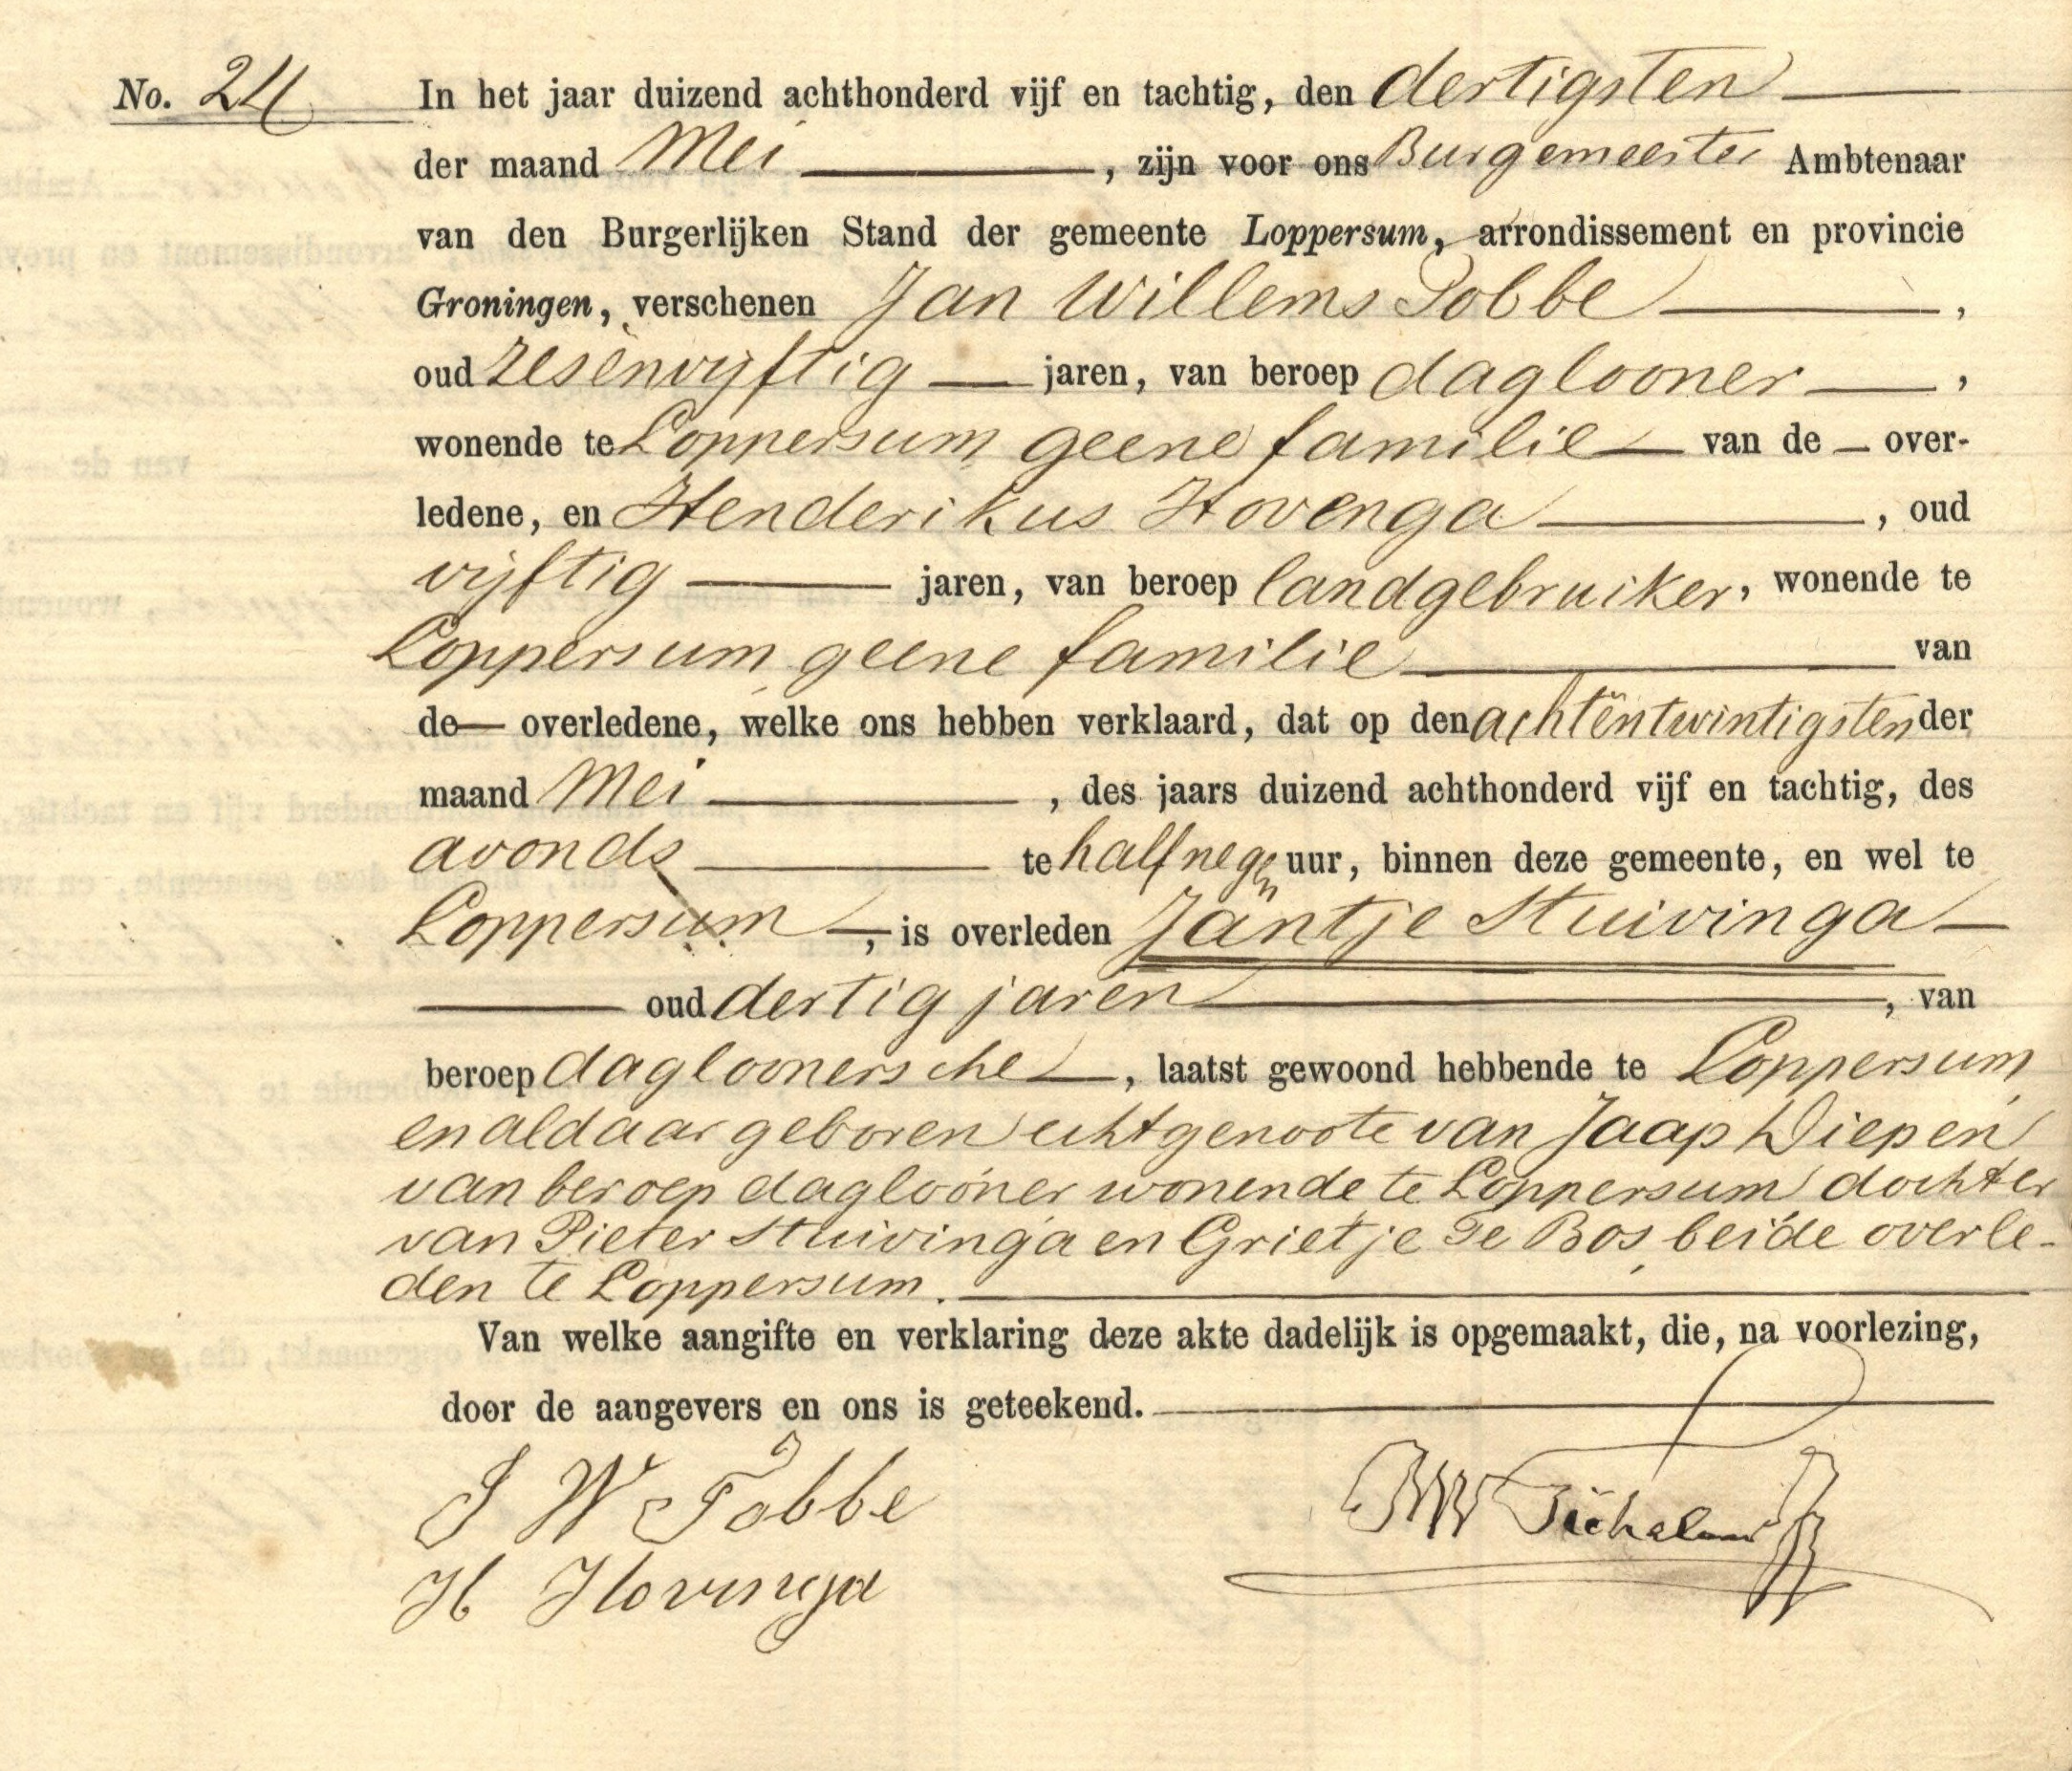 No. 24
In het jaar duizend achthonderd vijf en tachtig, den dertigsten
der maand Mei, zijn voor ons Burgemeester Ambtenaar
van den Burgerlijken Stand der gemeente Loppersum, arrondissement en provincie
Groningen, verschenen Jan Willems Tobbe,
oud zesenvijftig jaren, van beroep daglooner,
wonende te Loppersum geene familie van de over-
ledene, en Henderikus Hovenga, oud
vijftig jaren, van beroep landgebruiker, wonende te
Loppersum geene familie van
de overledene, welke ons hebben verklaard, dat op den achtentwintigsten der
maand Mei, des jaars duizend achthonderd vijf en tachtig, des
avonds te half negen uur, binnen deze gemeente, en wel te
Loppersum, is overleden Jantje Stuivinga
oud dertig jaren, van
beroep dagloonersche, laatst gewoond hebbende te Loppersum
en aldaar geboren echtgenoote van Jaap Diepen
van beroep daglooner wonende te Loppersum dochter
van Pieter Stuivinga en Grietje Te Bos, beide overle-
den te Loppersum.
Van welke aangifte en verklaring deze akte dadelijk is opgemaakt, die, na voorlezing,
door de aangevers en ons is geteekend.
J W Tobbe
H Hovinga